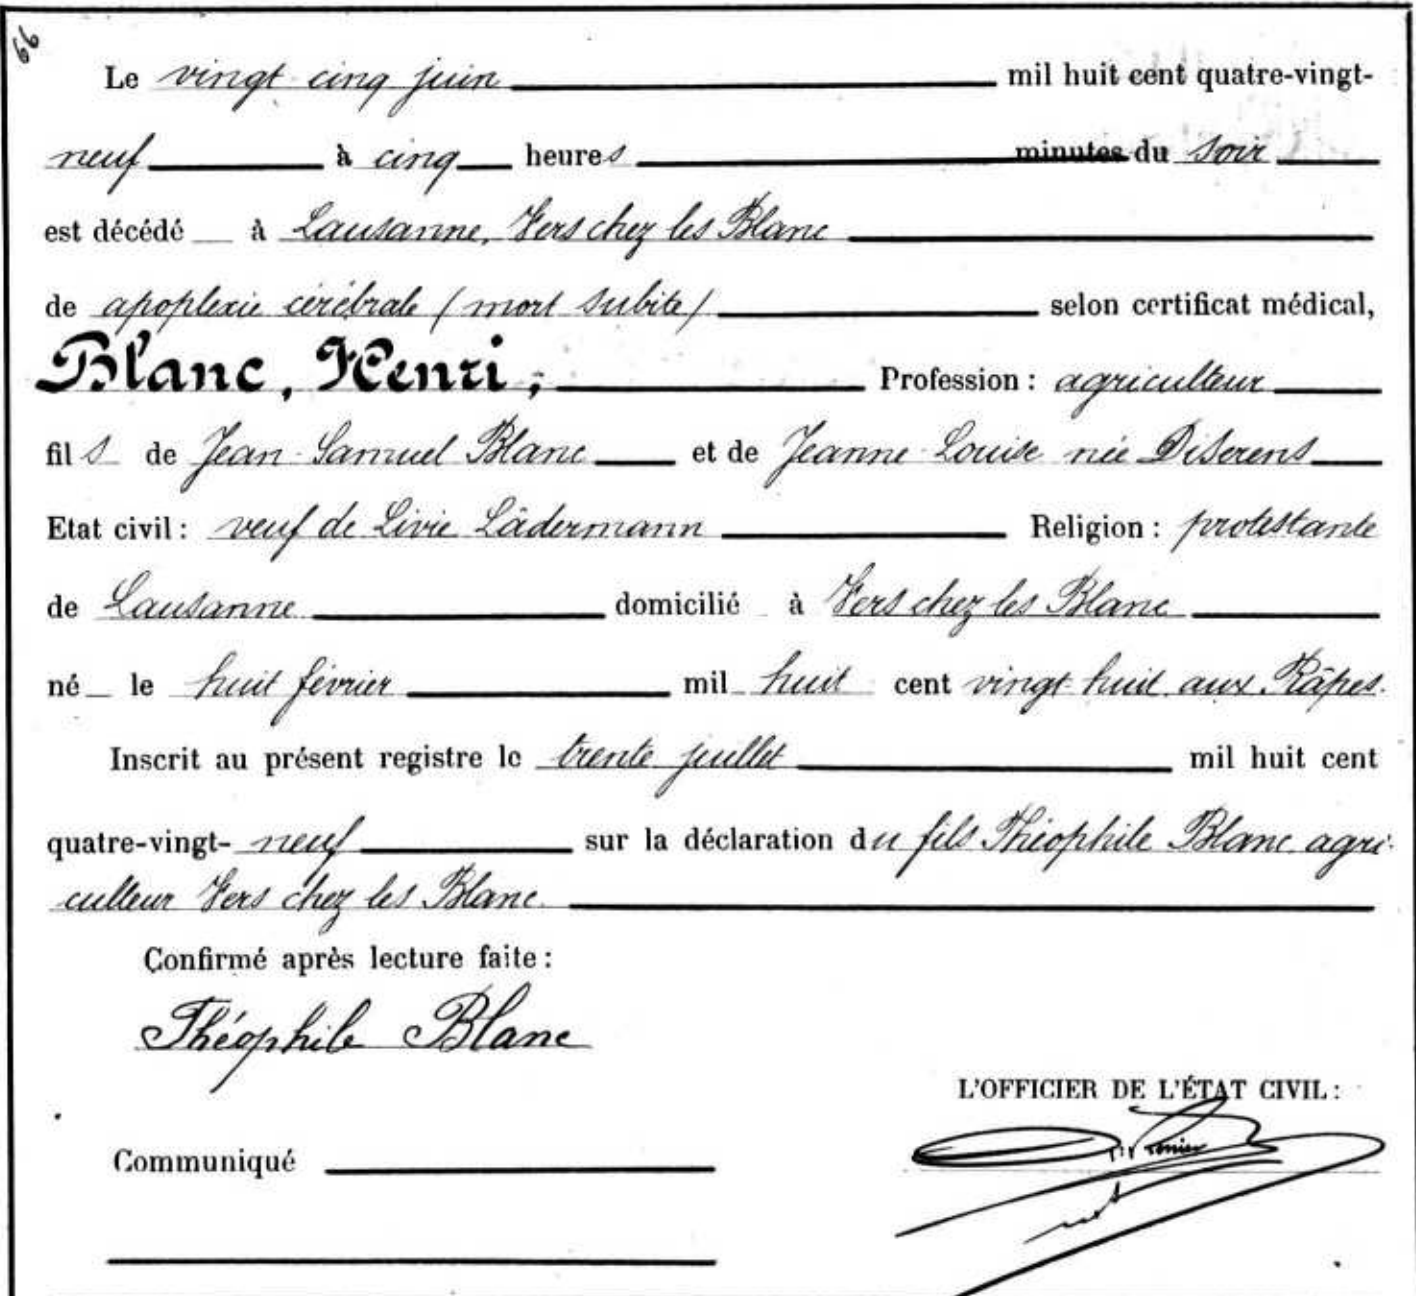 66
Le vingt cinq juin mil huit cent quatre-vingt-
neuf à cinq heures minutes du soir
est décédé à Lausanne, Vers chez les Blanc
de apoplexie cérébrale (mort subite) selon certificat médical,
Blanc, Henri, Profession : agriculteur
fils de Jean-Samuel Blanc et de Jeanne-Louise née Diserens
Etat civil : veuf de Livie Lädermann Religion : protestante
de Lausanne domicilié à Vers chez les Blanc
né le huit février mil huit cent vingt-huit aux Râpes.
Inscrit au présent registre le trente juillet mil huit cent
quatre-vingt-neuf sur la déclaration du fils Théophile Blanc agri-
culteur Vers chez les Blanc.
Confirmé après lecture faite :
Théophile Blanc
L'OFFICIER DE L'ÉTAT CIVIL :
Communiqué